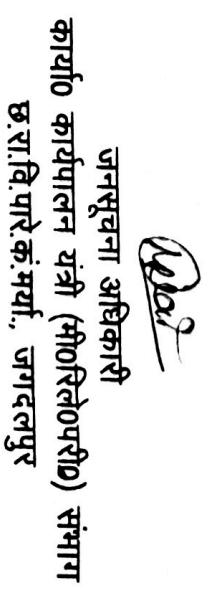 जनसूचना अधिकारी
कार्या0 कार्यपालन यंत्री (मी0रिले0परी0) संभाग
छ.रा.वि.पारे.कं.मर्या., जगदलपुर